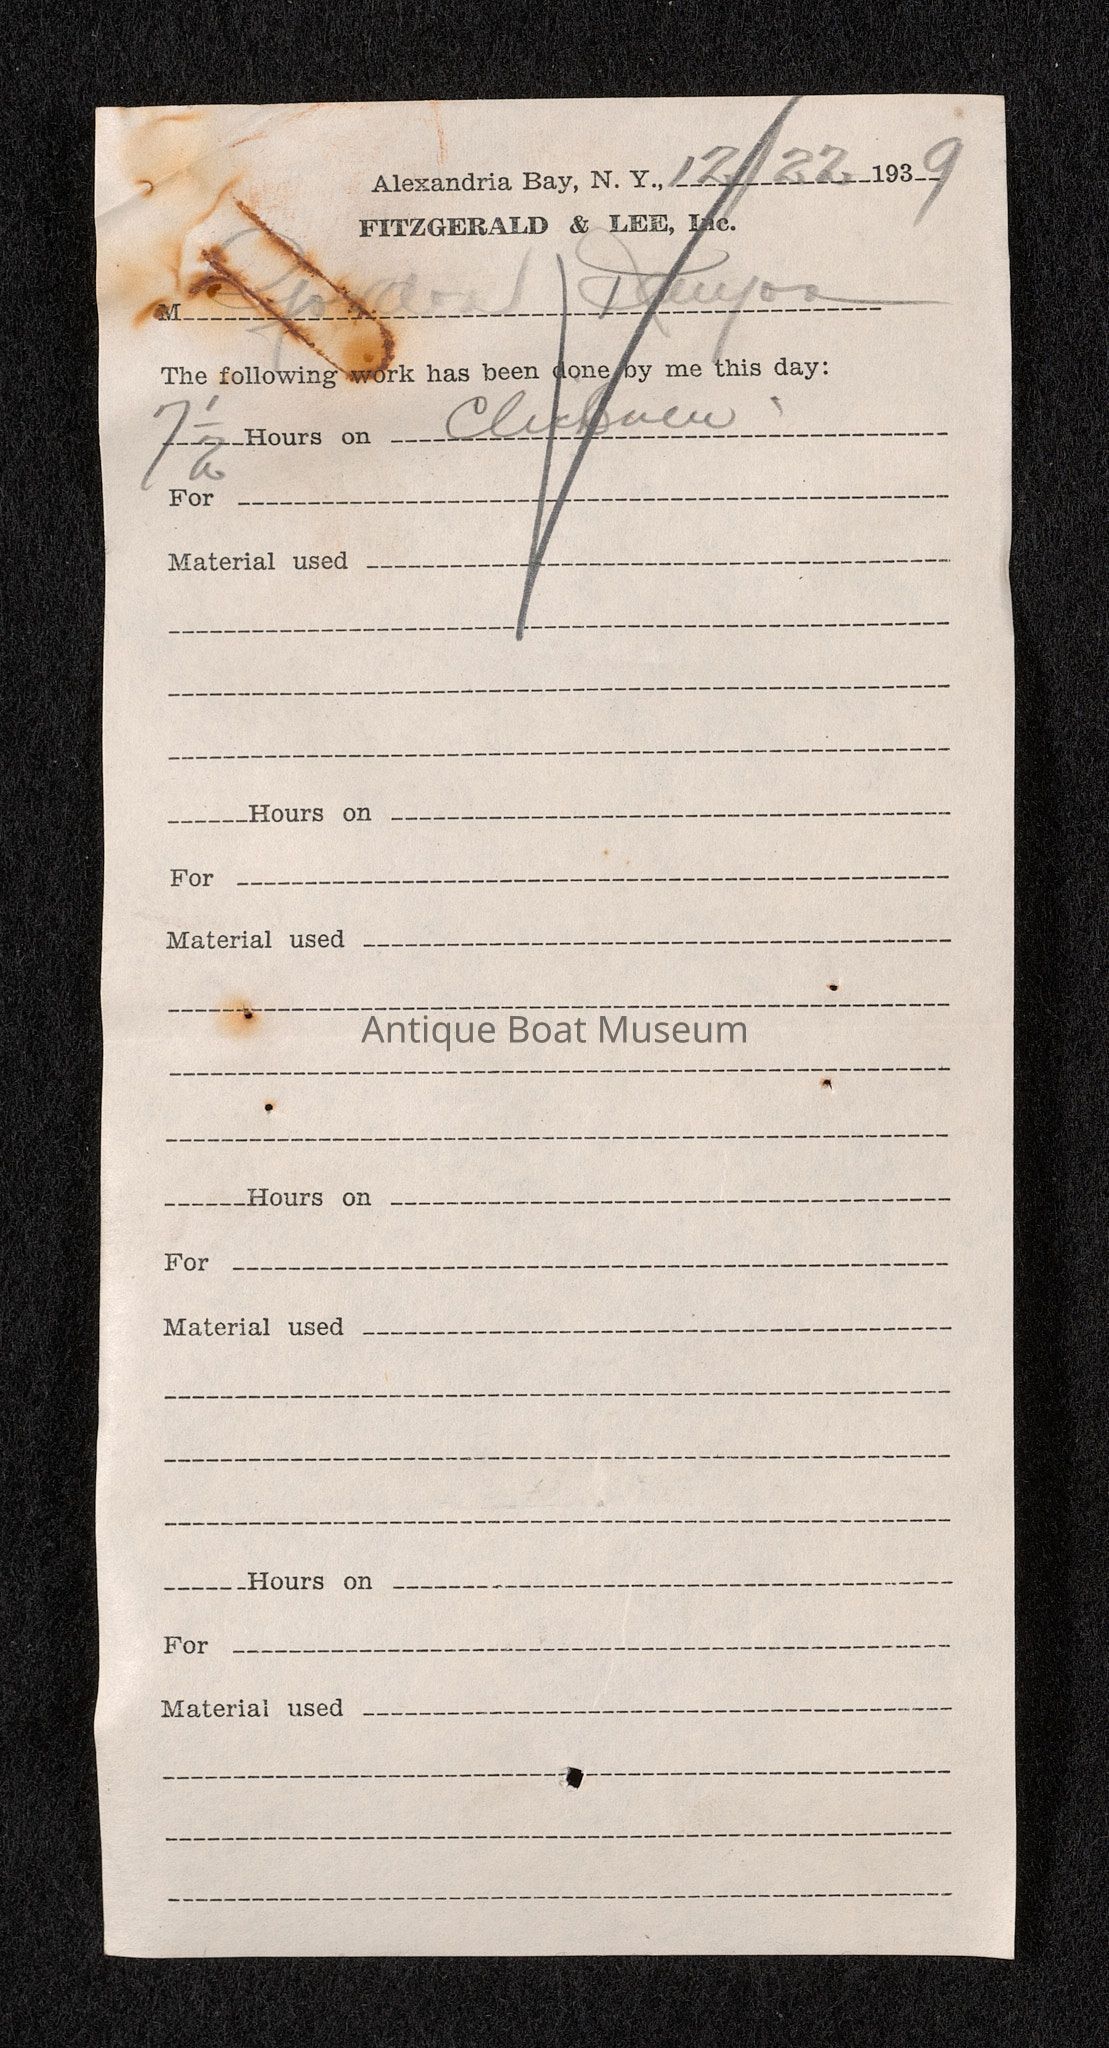 Alexandria Bay, N. Y., 12/22 1939
FITZGERALD & LEE, Inc.
M Gordon
The following work has been done by me this day:
7 1/2 Hours on
For
Material used
Hours on
For
Material used
Antique Boat Museum
Hours on
For
Material used
Hours on
For
Material used